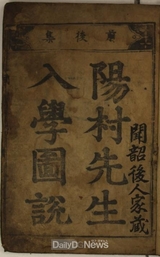 前後集
聞韶後人家藏
陽村先生
入學圖說
DailyD News